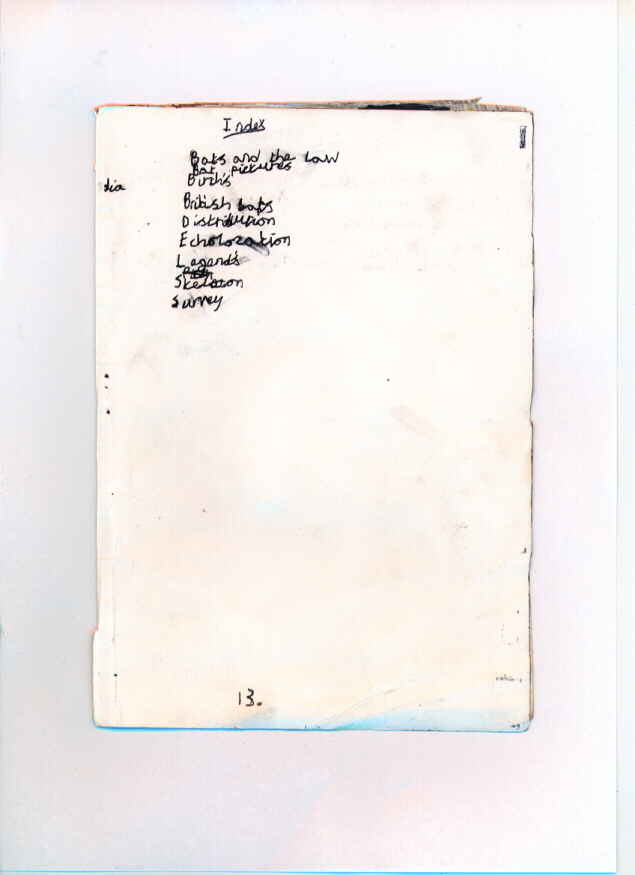 Index
Bats and the Law
Bat pictures
dia
British bats
Distribution
Echolocation
Legands
Skelaton
Survey
13.